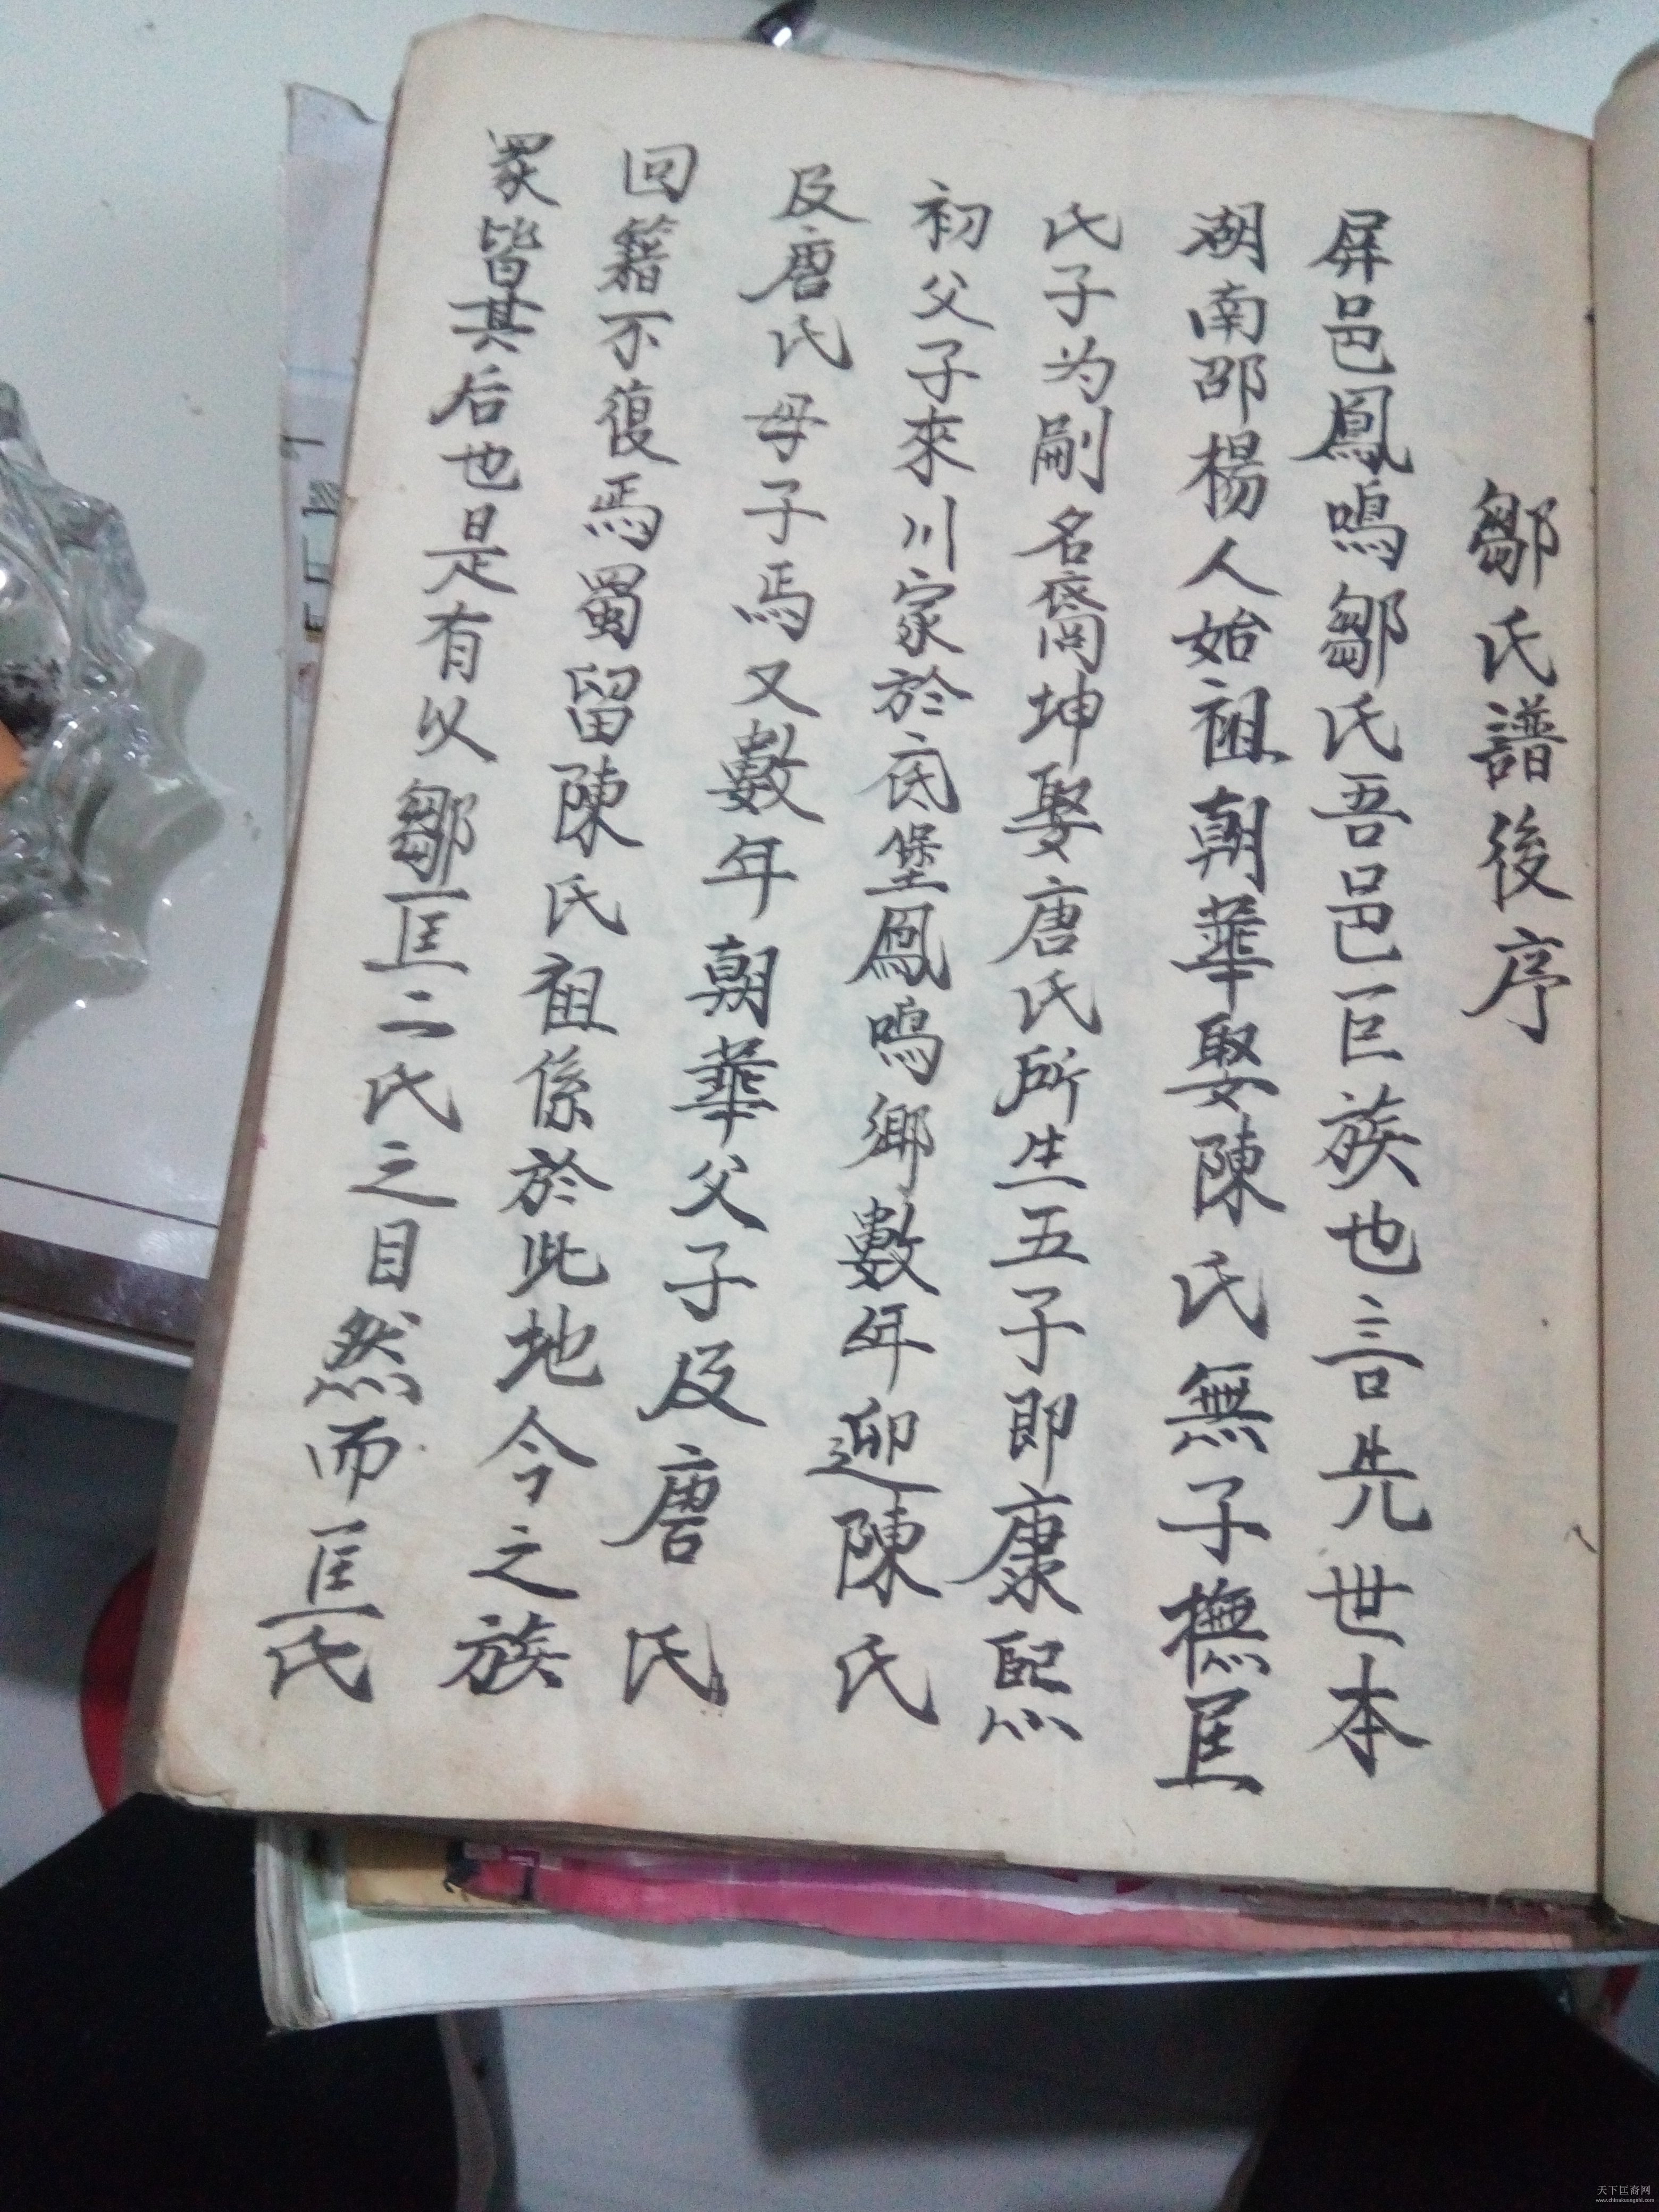 鄒氏譜後序
屏邑鳳鳴鄒氏吾邑巨族也言先世本
湖南邵楊人始祖朝華娶陳氏無子撫匡
氏子为嗣名坤娶唐氏所生五子即康熙
初父子來川家於底堡鳳鳴鄉數年迎陳氏
及唐氏母子焉又數年朝華父子及唐氏
回籍不復焉蜀留陳氏祖係於此地今之族
眾皆其后也是有以鄒匡二氏之目然而匡氏
天下匡裔网
www.chinakuangshi.com